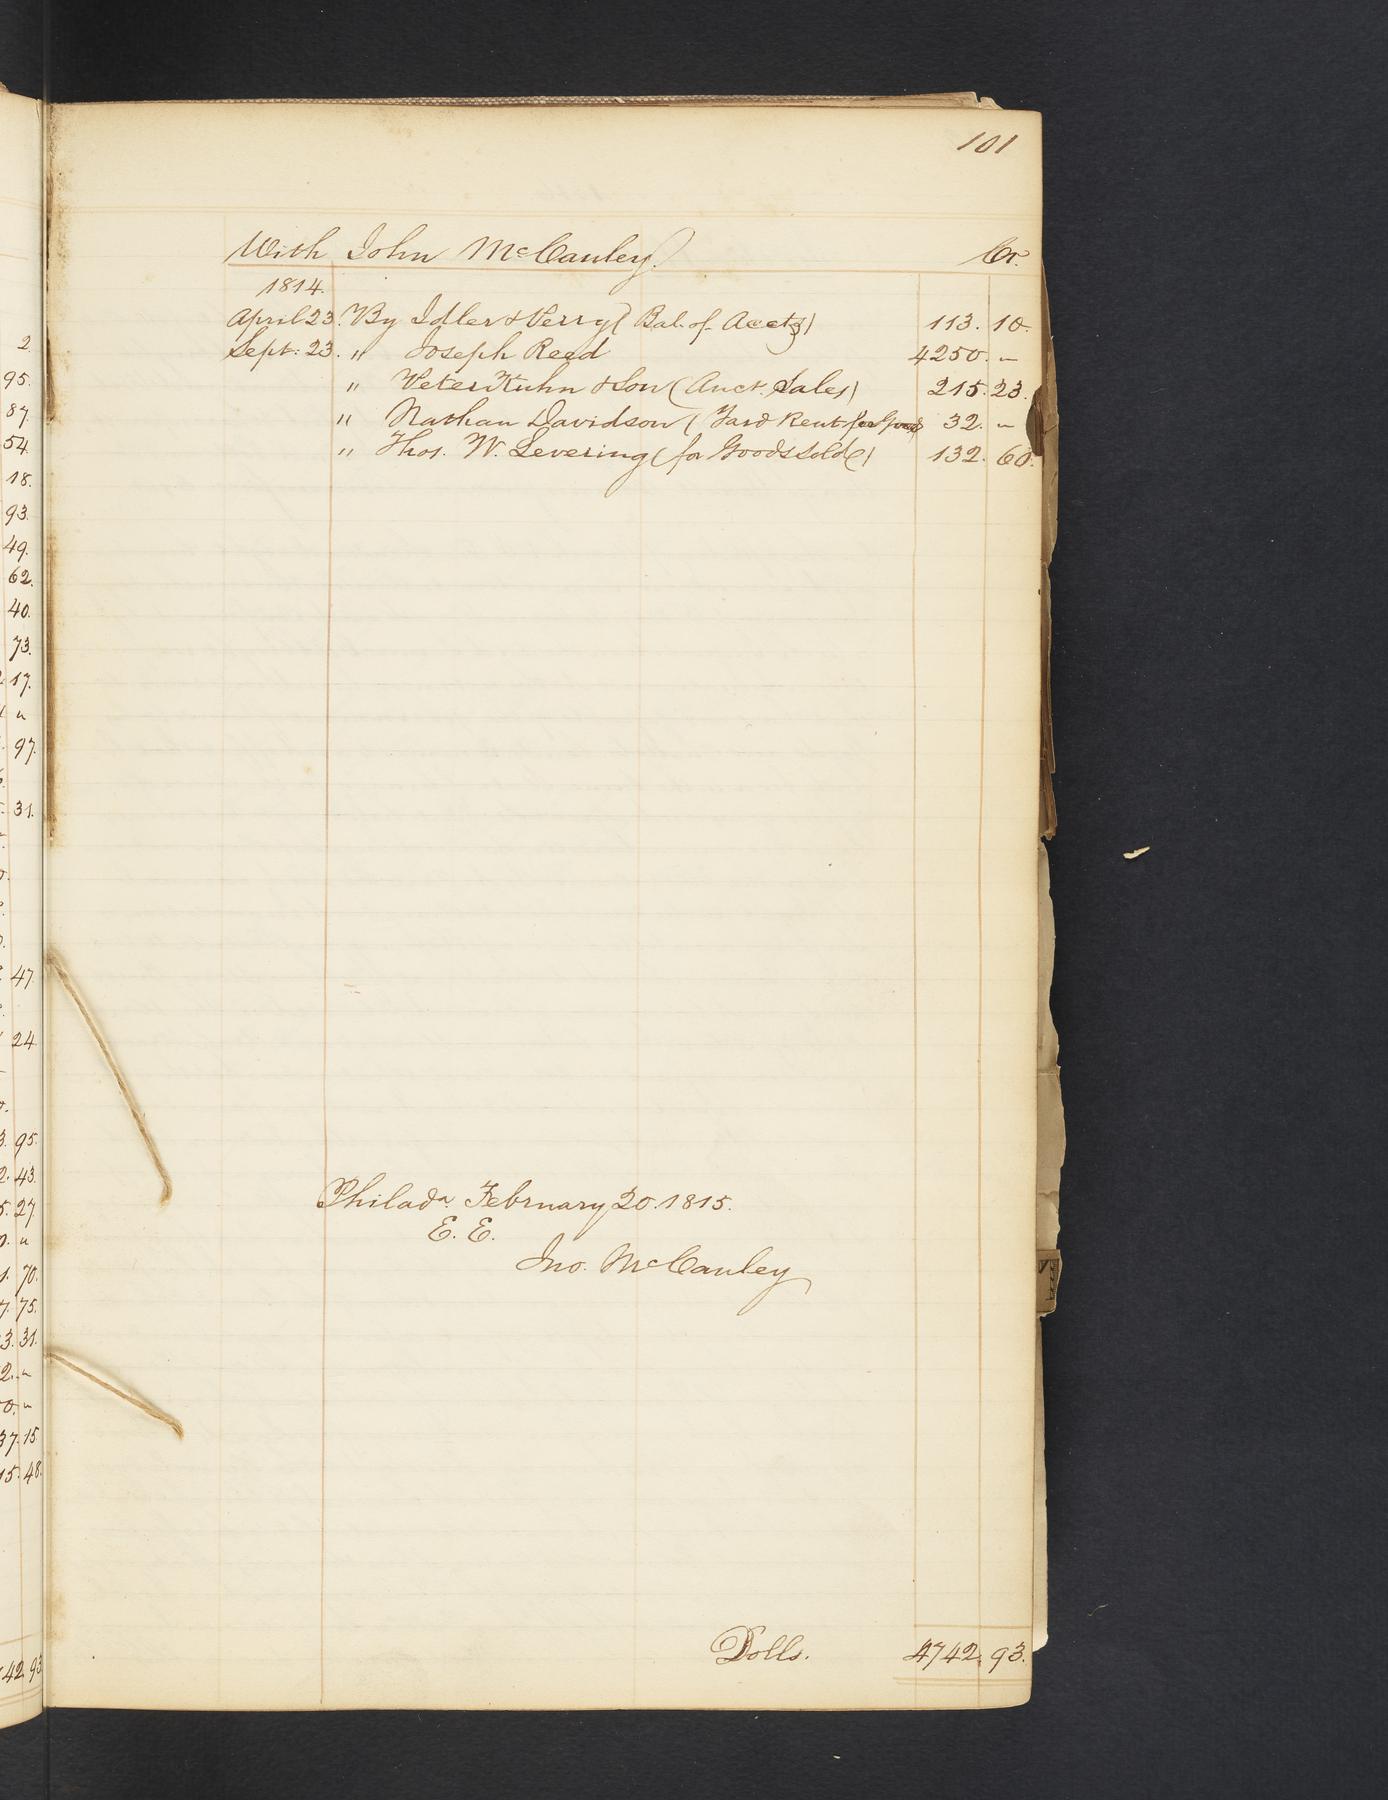 101
With John McCauley. Cr.
1814.
April 23. By Idler & Perry (Bal. of Accts) 113. 10.
Sept: 23. " Joseph Reed 4250. "
" Peter Kuhn & Son (Auct. Sales) 215. 23.
" Nathan Davidson (Yard Rent for Goods 32. "
" Thos. W. Levering (for Goods sold) 132. 60.
Philada. February 20. 1815.
E. E.
Jno. McCauley
Dolls. 4742. 93.
2.
95.
87.
54.
18.
93.
49.
62.
40.
73.
17.
"
97.
31.
47.
24.
95.
43.
27.
"
70.
75.
31.
"
"
37. 15.
15. 48.
42. 93